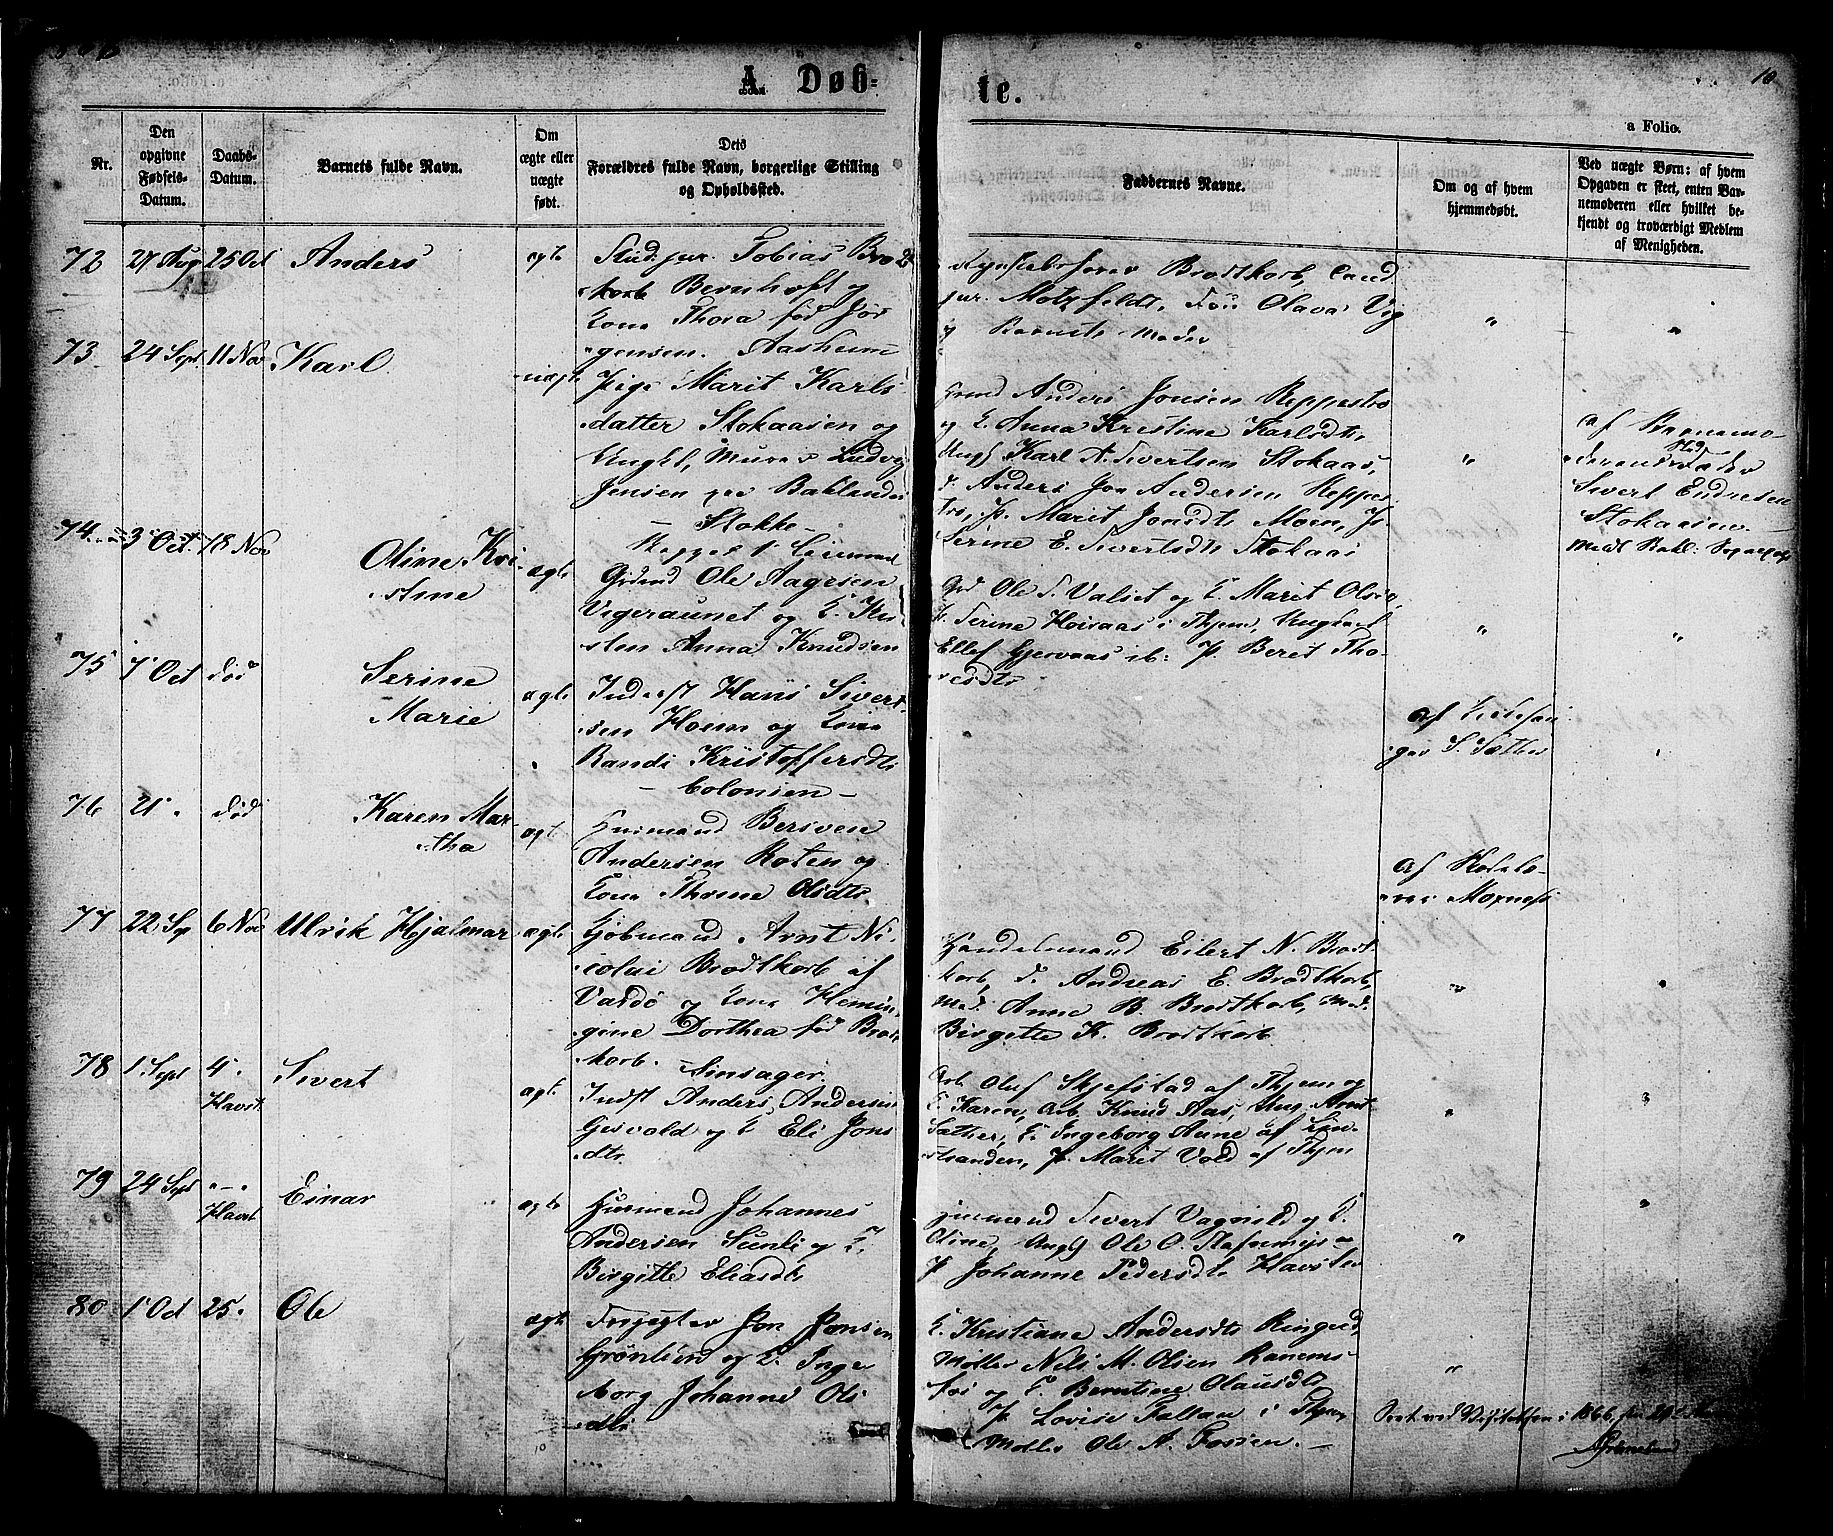 10
A. Døb=
te.
a Folio.
Nr.
Den
opgivne
Fødsels-
Datum.
Daabs-
Datum.
Barnets fulde Navn.
Om
ægte eller
uægte
født.
Dets
Forældres fulde Navn, borgerlige Stilling
og Opholdssted.
Faddernes Navne.
Om og af hvem
hjemmedøbt.
Ved uægte Børn: af hvem
Opgaven er skeet, enten Bar-
nemoderen eller hvilket be-
kjendt og troværdigt Medlem
af Menigheden.
72 27 Aug 25 Oct Anders ægte Stud. jur. Tobias Brod
korb Bernhoft og
Kone Thora fød Jør
gensen. Aasheim
Brodtkorb, Cand
jur. Motzfeldt, Olava Vig
og Barnets Moder
"
"
73 24 Sept. 11 Nov Karl uægte Pige Marit Karls
datter Stokaasen og
Ungkl, Murer Ludvig
Jensen paa Baklandet
- Stokke -
Anders Jonsen Reppestrø
og E. Anna Kristine Karlsdtr,
Ungk Karl A. Sivertsen Stokaas,
Anders Jon Andersen Reppes
trø, P. Marit Jonsdtr Moen, P.
Serine E. Sivertsdtr Stokaas
"
af Barnemo-
Sivert Endresen
Stokaasen
74 3 Oct. 18 Nov Oline Kri-
stine
ægte
Ole Aagesen
Vigeraunet og E. Kir
sten Anna Knudsen
Ole T. Valset og E. Marit Olsen,
P. Serine Hoisaas i Thjem, Ungkarl
Ellef Gjervaas ib: P. Beret Tho-
resdtr
"
"
75 7 Oct død Serine
Marie
ægte Inderst Hans Siverts
sen Hoem og Kone
Randi Kristoffersdtr
- Colonien -
S. Sæther
76 21 " død Karen Mar-
tha
ægte Husmand Bersven
Andersen Roten og
Kone Thomine Olsdtr
Moxness
77 22 Sep 6 Nov Ulrik Hjalmar ægte Kjøbmand Arnt Ni-
colai Brodtkorb af
Vardø og Kone Hemin-
gine Dorthea fød Brod
korb. Sinsager
Handelsmand Eilert N. Brodt
korb, Andreas E. Brodtkorb,
Mad. Anne B. Brodtkorb, Mad.
Birgette K. Brodtkorb
"
"
78 1 Sept 4 "
Havst.
Sivert ægte Indst Anders Andersen
Gisvold og E. Eli Jons
dtr
Arb Oluf Skjefstad af Thjem og
E. Karen, Arb. Knud Aas, Ung Arnt
Sæther, E. Ingeborg Aune af
stranden, P. Marit Vold af Thjem
"
"
79 24 Sept " - "
Havst
Einar ægte Husmand Johannes
Andersen Sunli og E.
Birgitte Eliasdtr
Husmand Sivert Vagnild og E.
Oline, Ungk Ole O.
P Johanne Pedersdtr Havsten
"
"
80 1 Oct 25 " Ole ægte Forpagter Jon Jonsen
Grønlien og E. Inge
borg Johanne Ols
dtr
E. Kristiane Andersdtr Ringend,
Møller Nils M. Olsen Ranems
foi og E. Berntine Olausdtr,
P. Lovise Fallan i Thjem
Møller Ole A. Fossen. -
"
ved Visitatsen i 1866